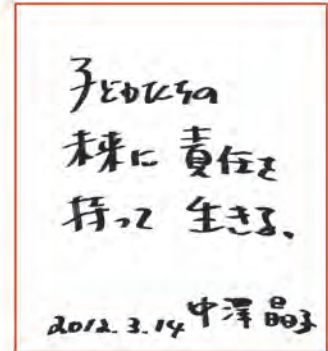 子どもたちの
未来に 責任を
持って 生きる。
2012.3.14 中澤 晶子